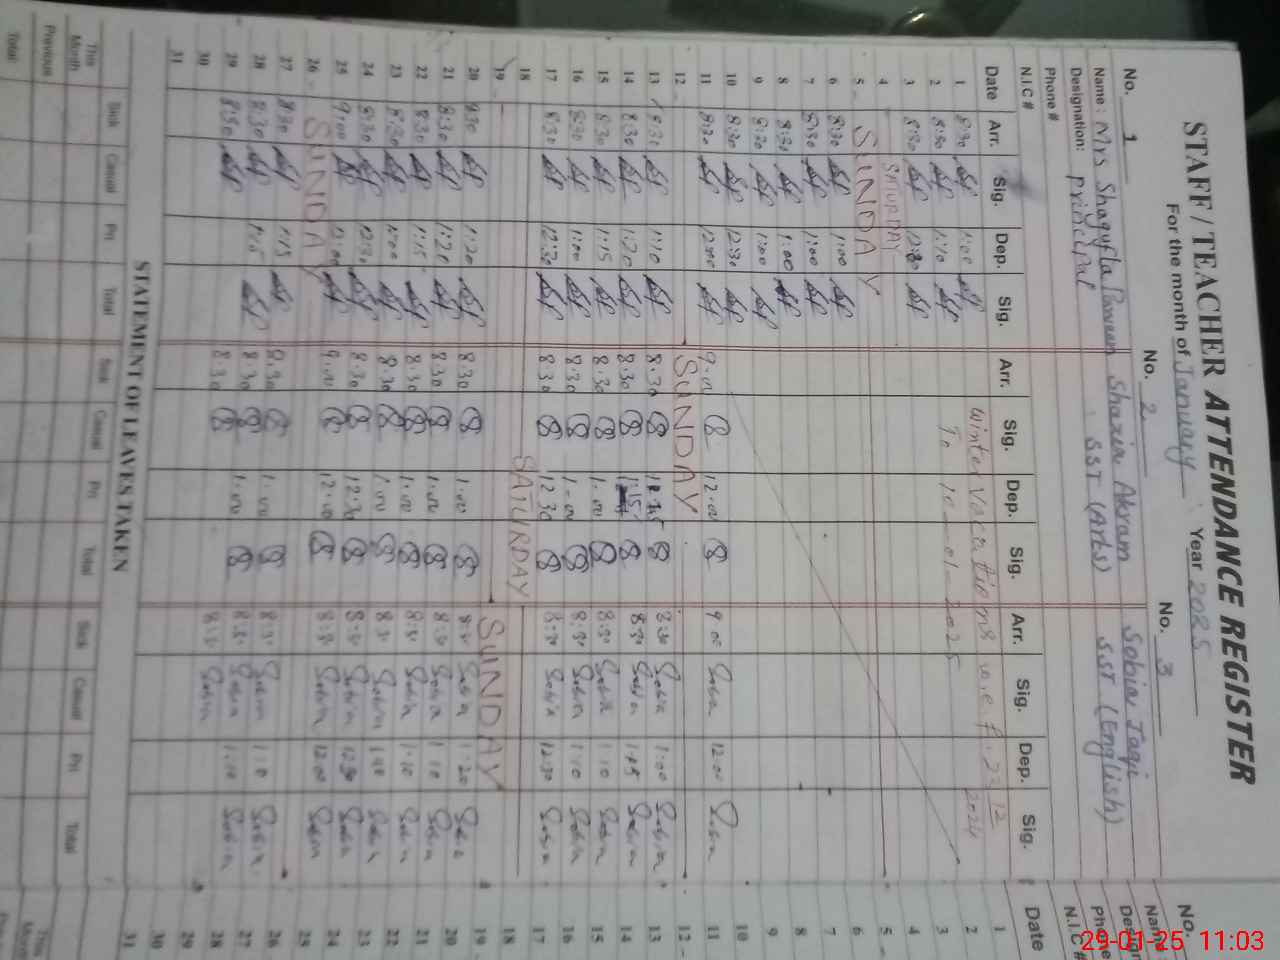 STAFF/TEACHER ATTENDANCE REGISTER
For the month of January Year 2025
No. 1 No. 2 No. 3 No.
Name: Mrs Shagufta Parveen Shazia Akram Sobia Taqi Name
Designation: principal SST (Arts) SST (English)
Phone #
N.I.C # N.I.C #
Date Arr. Sig. Dep. Sig. Arr. Sig. Dep. Sig. Arr. Sig. Dep. Sig. Date
1 8:30 1:00 Winter Vacations w.e.f. 23 12 2024 1
2 8:30 1:10 To 10-01-2025 2
3 8:30 12:30 3
4 SATURDAY 4
5 SUNDAY 5
6 8:30 1:00 6
7 8:30 1:00 7
8 8:30 1:00 8
9 8:30 1:00 9
10 8:30 12:30 10
11 8:30 12:00 9:00 12:00 9 00 Sobia 12:00 Sobia 11
12 SUNDAY 12
13 8:30 1:10 8:30 8:30 Sobia 1:00 Sobia 13
14 8:30 1:20 8:30 1:15 8:30 Sobia 1:15 Sobia 14
15 8:30 1:15 8:30 1:00 8:30 Sobia 1:10 Sobia 15
16 8:30 1:00 8:30 1:00 8:30 Sobia 1:10 Sobia 16
17 8:30 12:30 8:30 12:30 8:30 Sobia 12:30 Sobia 17
18 SATURDAY 18
19 SUNDAY 19
20 8:30 1:20 8:30 1:00 8:30 Sobia 1:20 Sobia 20
21 8:30 1:20 8:30 1:00 8:30 Sobia 1:10 Sobia 21
22 8:30 1:15 8:30 1:00 8:30 Sobia 1:10 Sobia 22
23 8:30 1:00 8:30 1:00 8:30 Sobia Sobia 23
24 8:30 12:30 8:30 12:30 8:30 Sobia 12:30 Sobia 24
25 9:00 12:00 9:00 12:00 8:30 Sobia 12:00 Sobia 25
26 SUNDAY 26
27 8:30 1:15 8:30 1:00 8:30 Sobia 1:10 Sobia 27
28 8:30 1:15 8:30 1:00 8:30 Sobia 1:10 Sobia 28
29 8:30 8:30 8:30 Sobia 29
30 30
31 31
STATEMENT OF LEAVES TAKEN
Sick Casual Pri Total Sick Casual Pri Total Sick Casual Pri Total
This Month This Month
Previous
Total
29-01-25 11:03